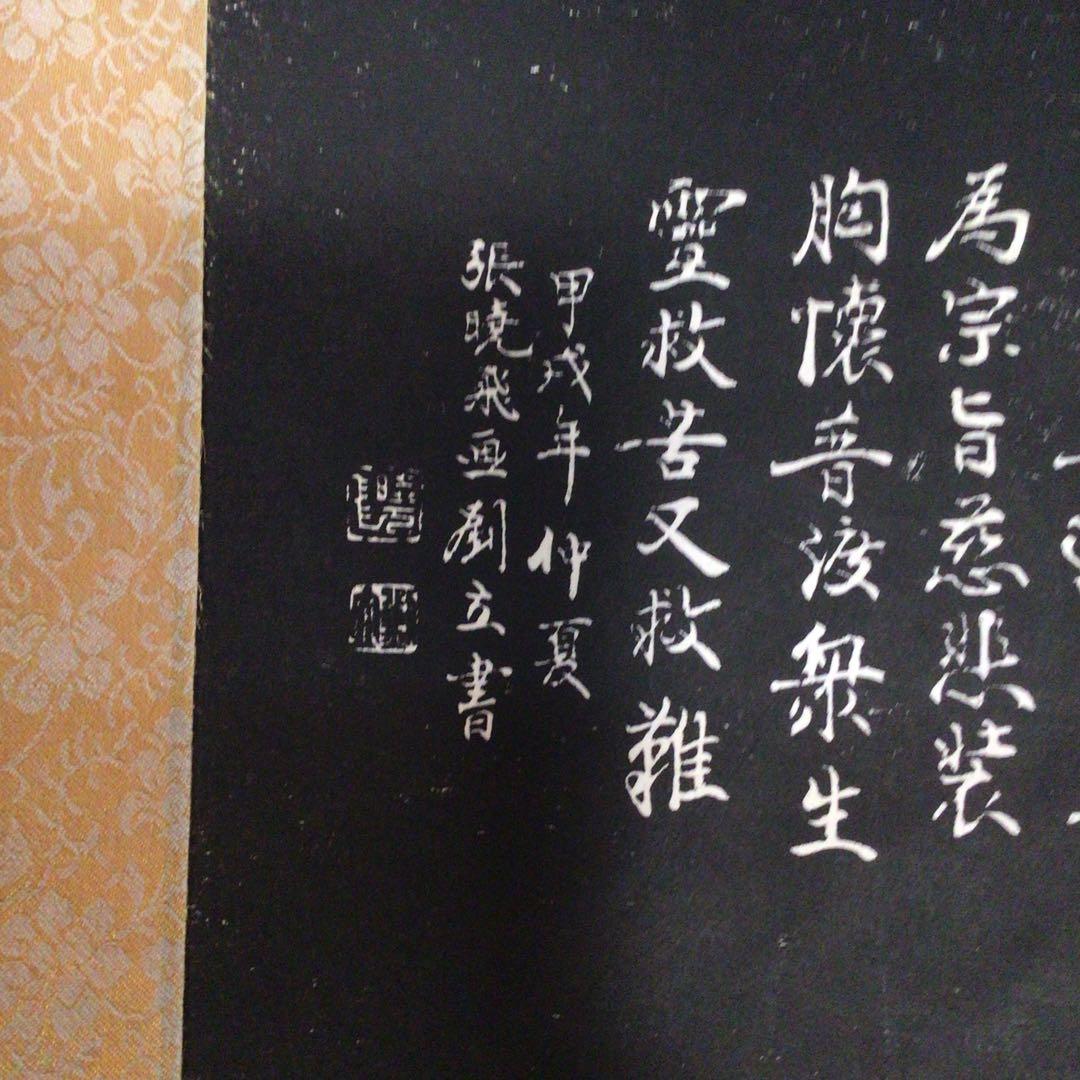 為宗旨慈悲裝
胸懷普渡衆生
靈救苦又救難
甲戌年仲夏
張曉飛画劉立書